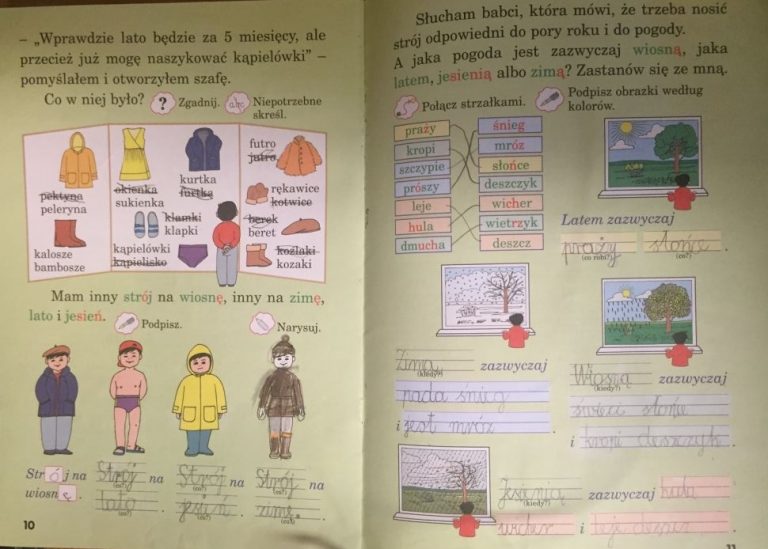 – „Wprawdzie lato będzie za 5 miesięcy, ale
przecież już mogę naszykować kąpielówki” –
pomyślałem i otworzyłem szafę.
Co w niej było? ? Zgadnij. abc Niepotrzebne
skreśl.
futro
jutro
kurtka
furtka
okienka
sukienka
pektyna
peleryna
rękawice
kotwice
klamki
klapki
berek
beret
kąpielówki
kąpielisko
kalosze
bambosze
koźlaki
kozaki
Mam inny strój na wiosnę, inny na zimę,
lato i jesień. Podpisz. Narysuj.
Strój na Strój na Strój na Strój na
(co?) (co?) (co?)
wiosnę lato. jesień. zimę.
(co?) (co?) (co?)
10
Słucham babci, która mówi, że trzeba nosić
strój odpowiedni do pory roku i do pogody.
A jaka pogoda jest zazwyczaj wiosną, jaka
latem, jesienią albo zimą? Zastanów się ze mną.
Połącz strzałkami. Podpisz obrazki według
kolorów.
praży śnieg
kropi mróz
szczypie słońce
prószy deszczyk
leje wicher
hula wietrzyk
dmucha deszcz
Latem zazwyczaj
praży słońce.
(co robi?) (co?)
Zimą zazwyczaj
(kiedy?)
pada śnieg
i jest mróz.
Wiosną zazwyczaj
(kiedy?)
świeci słońce
i kropi deszczyk.
Jesienią zazwyczaj
(kiedy?)
i leje
11